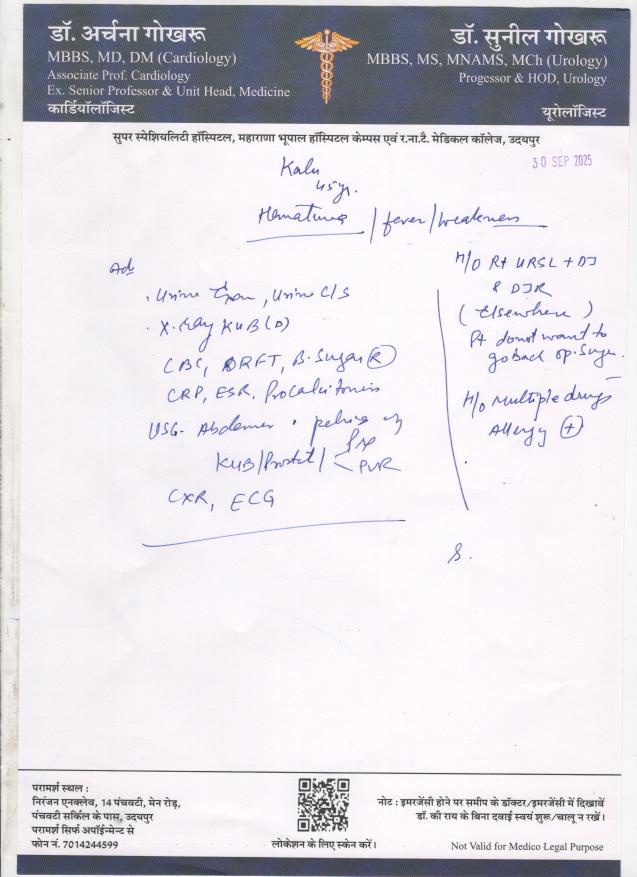 डॉ. अर्चना गोखरू
MBBS, MD, DM (Cardiology)
Associate Prof. Cardiology
Ex. Senior Professor & Unit Head, Medicine
कार्डियॉलॉजिस्ट
डॉ. सुनील गोखरू
MBBS, MS, MNAMS, MCh (Urology)
Progessor & HOD, Urology
यूरोलॉजिस्ट
सुपर स्पेशियलिटी हॉस्पिटल, महाराणा भूपाल हॉस्पिटल केम्पस एवं र.ना.टै. मेडिकल कॉलेज, उदयपुर
30 SEP 2025
Kalu
45yr.
Hematuria / fever/weakness
Ad
. Urine Exam, Urine C/S
. X-Ray KUB (D)
CBC, RFT, B. Sugar (R)
CRP, ESR, Procalcitonin
USG- Abdomen . pelvis
KUB/Prostat/ < PVR
CXR, ECG
H/O Rt URSL + DJ
& DJR
(Elsewhere)
Pt donot want to
go back op. Surgeon
H/O Multiple drugs
Allergy (+)
परामर्श स्थल :
निरंजन एनक्लेव, 14 पंचवटी, मेन रोड़,
पंचवटी सर्किल के पास, उदयपुर
परामर्श सिर्फ अपॉईन्मेन्ट से
फोन नं. 7014244599
लोकेशन के लिए स्केन करें।
नोट : इमरजेंसी होने पर समीप के डॉक्टर/इमरजेंसी में दिखावें
डॉ. की राय के बिना दवाई स्वयं शुरू/चालू न रखें।
Not Valid for Medico Legal Purpose